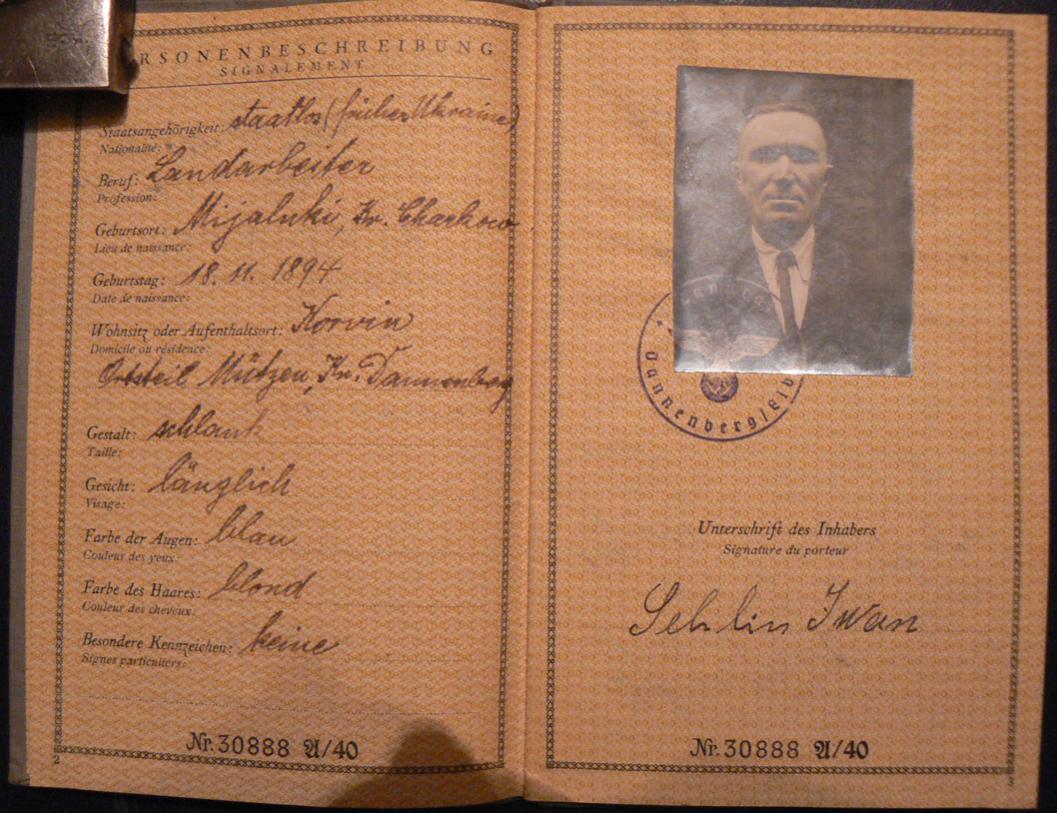 RSONENBESCHREIBUNG
SIGNALEMENT
Staatsangehörigkeit: staatlos (früher Ukraine)
Nationalité:
Beruf: Landarbeiter
Profession:
Geburtsort: Mijaluki, Kr. Charkow
Lieu de naissance:
Geburtstag: 18. 11. 1894
Date de naissance:
Wohnsitz oder Aufenthaltsort: Korvin
Domicile ou résidence:
Ortsteil Mützen, Kr. Dannenberg
Gestalt: schlank
Taille:
Gesicht: länglich
Visage:
Farbe der Augen: blau
Couleur des yeux:
Farbe des Haares: blond
Couleur des cheveux:
Besondere Kennzeichen: keine
Signes particuliers:
Nr. 30888 A/40
2
Dannenberg/Elb
Unterschrift des Inhabers
Signature du porteur
Iwan
Nr. 30888 A/40
3